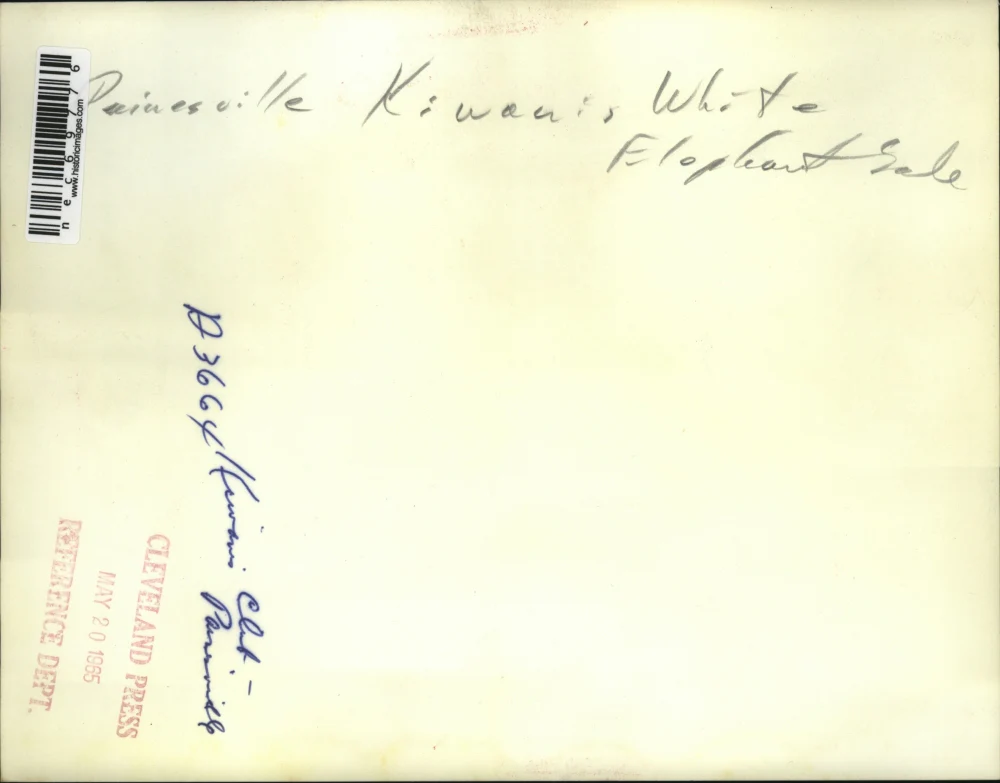 Painesville Kiwanis White
Elephant Sale
nec69776
www.historicimages.com
D3664 Kiwanis Club -
Painesville
CLEVELAND PRESS
MAY 20 1965
REFERENCE DEPT.